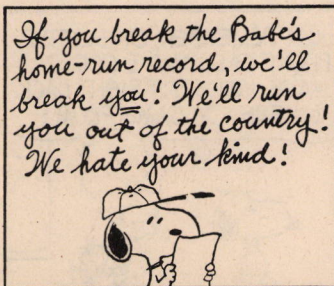 If you break the Babe's
home-run record, we'll
break you! We'll run
you out of the country!
We hate your kind!